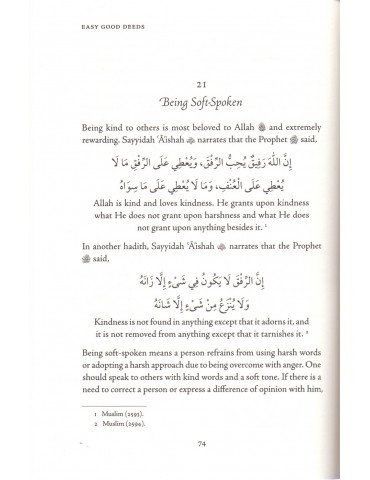 EASY GOOD DEEDS
21
Being Soft-Spoken
Being kind to others is most beloved to Allah ﷻ and extremely
rewarding. Sayyidah ʿĀʾishah narrates that the Prophet ﷺ said,
إِنَّ اللَّهَ رَفِيقٌ يُحِبُّ الرِّفْقَ، وَيُعْطِي عَلَى الرِّفْقِ مَا لَا
يُعْطِي عَلَى الْعُنْفِ، وَمَا لَا يُعْطِي عَلَى مَا سِوَاهُ
Allah is kind and loves kindness. He grants upon kindness
what He does not grant upon harshness and what He does
not grant upon anything besides it. ¹
In another hadith, Sayyidah ʿĀʾishah narrates that the Prophet
ﷺ said,
إِنَّ الرِّفْقَ لَا يَكُونُ فِي شَيْءٍ إِلَّا زَانَهُ
وَلَا يُنْزَعُ مِنْ شَيْءٍ إِلَّا شَانَهُ
Kindness is not found in anything except that it adorns it, and
it is not removed from anything except that it tarnishes it. ²
Being soft-spoken means a person refrains from using harsh words
or adopting a harsh approach due to being overcome with anger. One
should speak to others with kind words and a soft tone. If there is a
need to correct a person or express a difference of opinion with him,
1 Muslim (2593).
2 Muslim (2594).
74